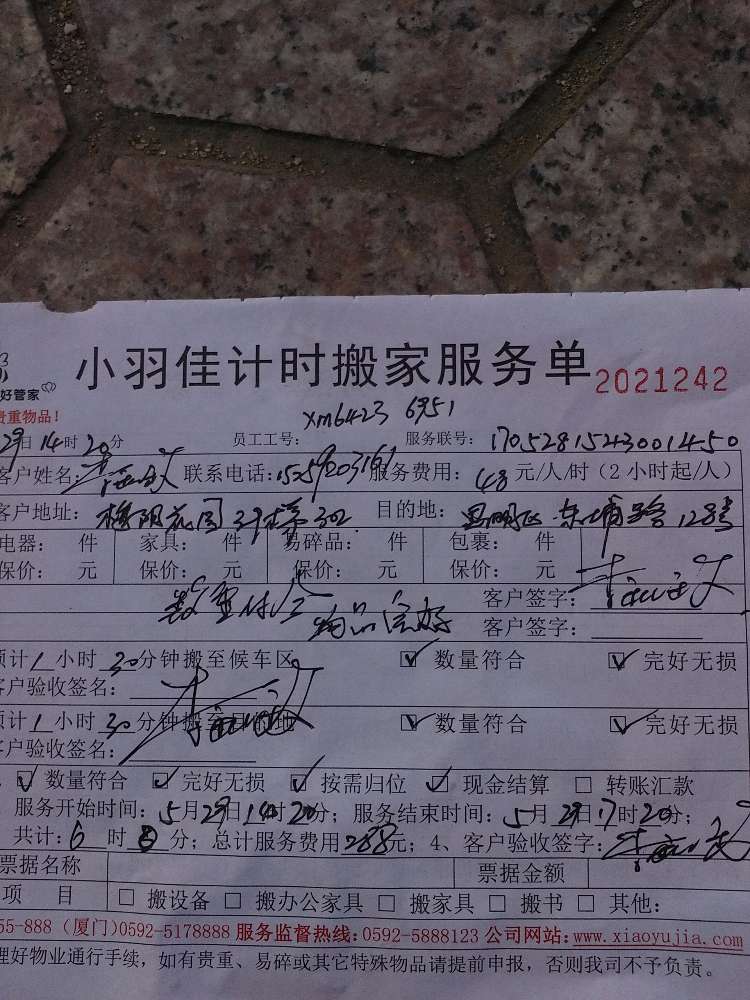 小羽佳计时搬家服务单 2021242
好管家
贵重物品!
xm6423 6951
29日14时20分 员工工号: 服务联号: 17052815243001450
客户姓名: 联系电话: 服务费用: 48元/人/时(2小时起/人)
客户地址: 目的地: 128号
电器: 件 家具: 件 易碎品: 件 包裹: 件
保价: 元 保价: 元 保价: 元 保价: 元
客户签字:
数量符合 物品完好 客户签字:
预计1小时30分钟搬至候车区 ☑数量符合 ☑完好无损
客户验收签名:
预计1小时30分钟搬至目的地 ☑数量符合 ☑完好无损
客户验收签名:
☑数量符合 ☑完好无损 ☑按需归位 ☑现金结算 □转账汇款
服务开始时间: 5月29日14时20分; 服务结束时间: 5月29日17时20分;
共计: 6时 分; 总计服务费用288元; 4、客户验收签字:
票据名称 票据金额
项目 □搬设备 □搬办公家具 □搬家具 □搬书 □其他:
55-888 (厦门)0592-5178888 服务监督热线:0592-5888123 公司网站:www.xiaoyujia.com
理好物业通行手续,如有贵重、易碎或其它特殊物品请提前申报,否则我司不予负责。